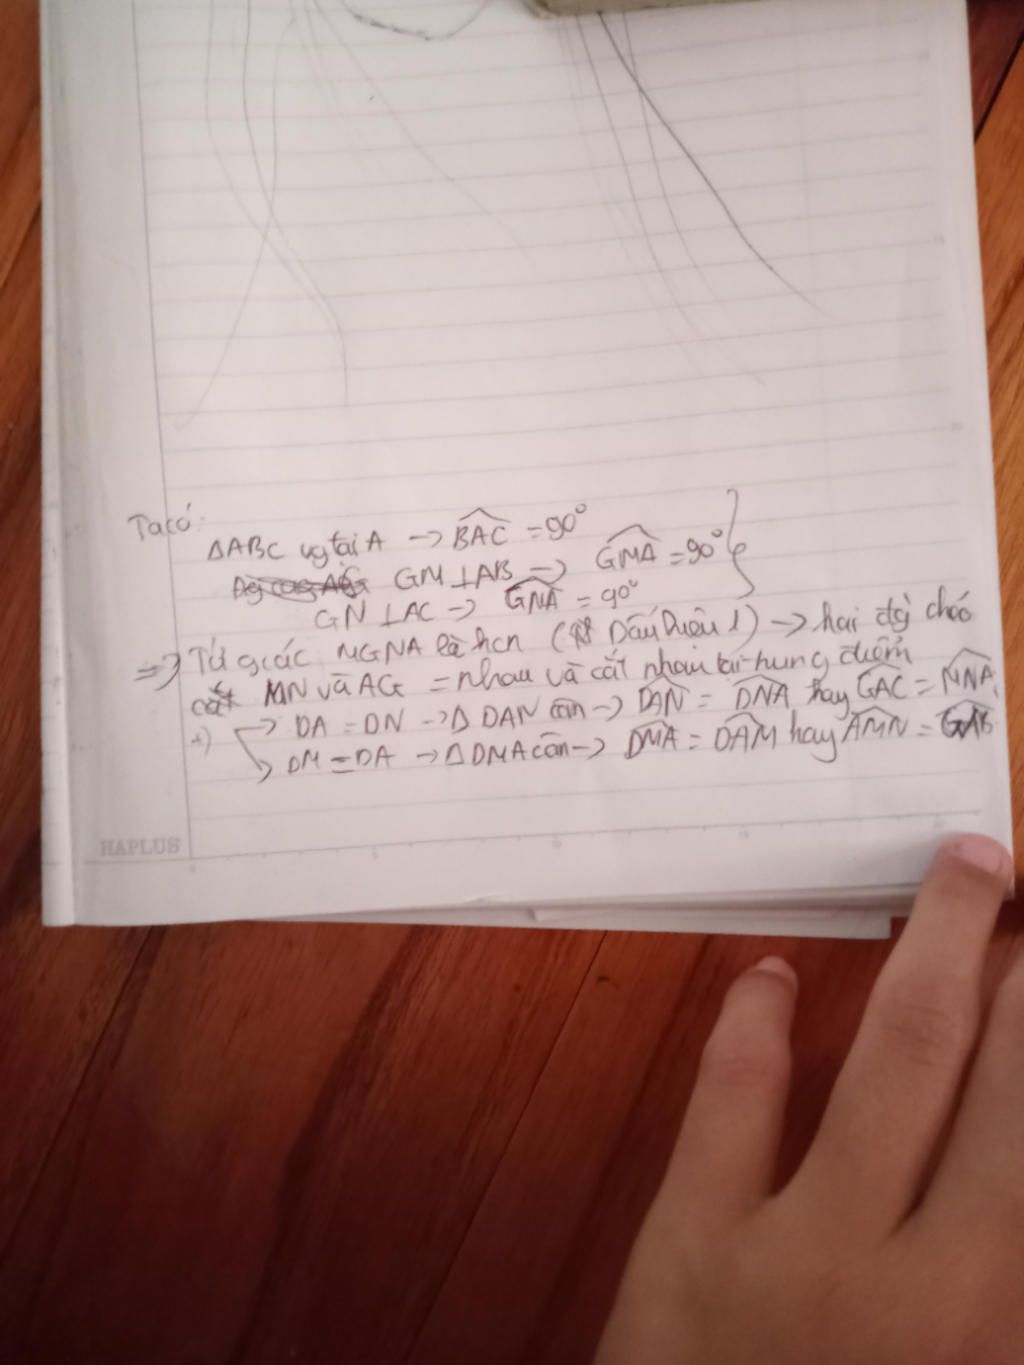 Ta có:
ΔABC vg tại A → BAC = 90°
GM ⊥ AB → GMA = 90°
GN ⊥ AC → GNA = 90°
=> Tứ giác MGNA là hcn (Dấu hiệu 1) → hai đg chéo
MN và AG = nhau và cắt nhau tại trung điểm
→ DA = DN → Δ DAN cân → DAN = DNA hay GAC = MNA
+) → DM = DA → Δ DMA cân → DMA = DAM hay AMN = GAB
HAPLUS